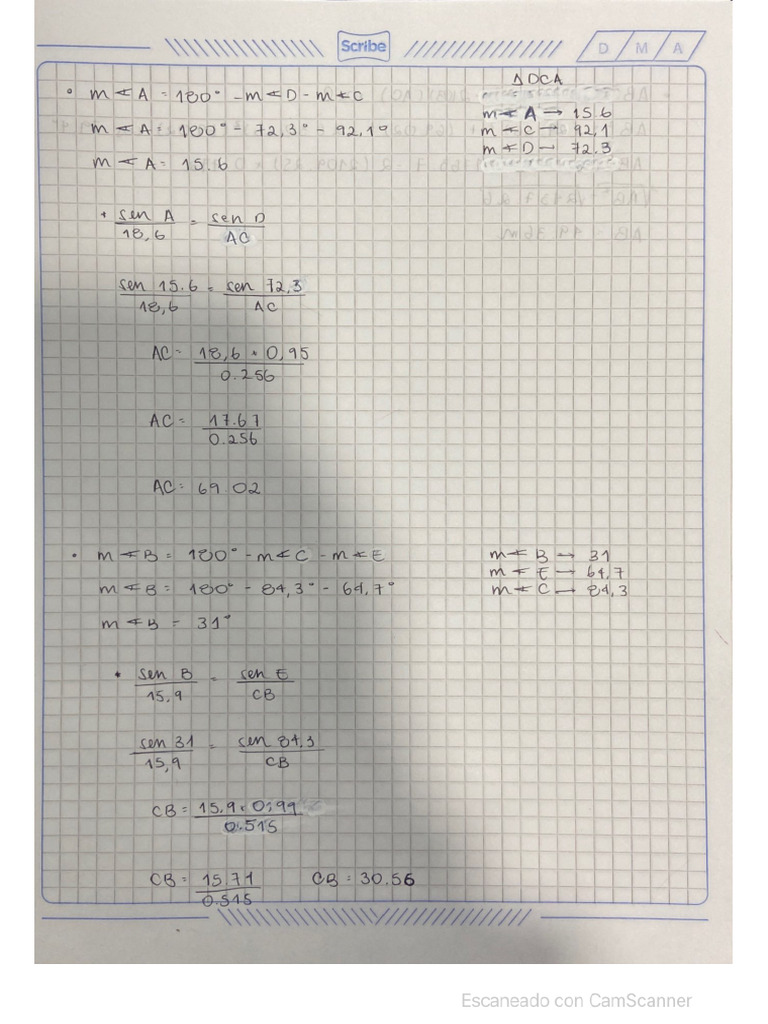 Scribe
D / M / A
Δ DCA
• m∢A = 180° - m∢D - m∢C
m∢A → 15.6
m∢A = 180° - 72,3° - 92,1°
m∢C → 92,1
m∢A = 15.6
m∢D → 72.3
• sen A / 18,6 = sen D / AC
sen 15.6 / 18,6 = sen 72,3 / AC
AC = 18,6 • 0,95 / 0.256
AC = 17.67 / 0.256
AC = 69.02
• m∢B = 180° - m∢C - m∢E
m∢B → 31
m∢E → 64,7
m∢B = 180° - 84,3° - 64,7°
m∢C → 84,3
m∢B = 31°
• sen B / 15,9 = sen E / CB
sen 31 / 15,9 = sen 84,3 / CB
CB = 15,9 • 0,99 / 0.515
CB = 15.71 / 0.515 CB = 30.56
Escaneado con CamScanner